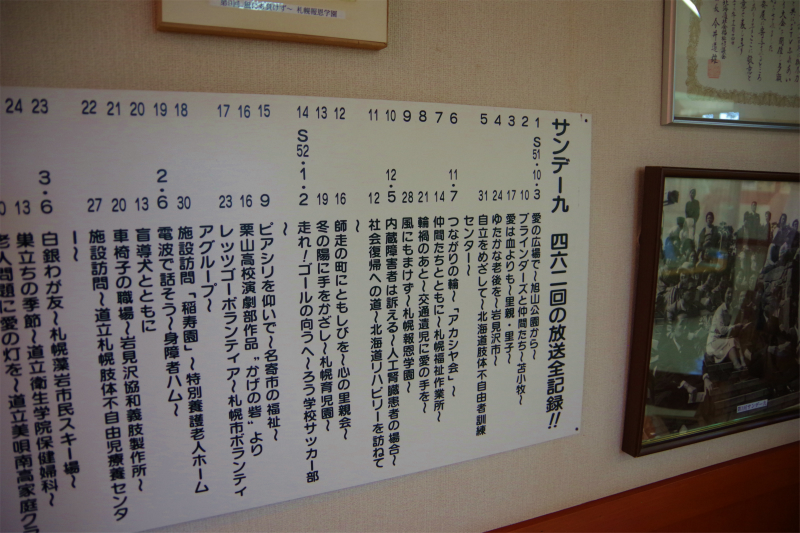 サンデー九 四六二回の放送全記録!!
1 S51・10・3 愛の広場で〜旭山公園から〜
2 10 ブラインダーズと仲間たち〜苫小牧〜
3 17 愛は血よりも〜里親・里子〜
4 24 ゆたかな老後を〜岩見沢市〜
5 31 自立をめざして〜北海道肢体不自由者訓練
センター〜
6 11・7 つながりの輪〜「アカシヤ会」〜
7 14 仲間たちとともに〜札幌福祉作業所〜
8 21 輪禍のあと〜交通遺児に愛の手を〜
9 28 風にもまけず〜札幌報恩学園〜
10 12・5 内蔵障害者は訴える〜人工腎臓患者の場合〜
11 12 社会復帰への道〜北海道リハビリーを訪ねて
〜
12 16 師走の町にともしびを〜心の里親会〜
13 19 冬の陽に手をかざし〜札幌育児園〜
14 S52・1・2 走れ!ゴールの向うへ〜ろう学校サッカー部
〜
15 9 ピアシリを仰いで〜名寄市の福祉〜
16 16 栗山高校演劇部作品“かげの砦”より
17 23 レッツゴーボランティア〜札幌市ボランティ
アグループ〜
18 30 施設訪問「稲寿園」〜特別養護老人ホーム
19 2・6 電波で話そう〜身障者ハム〜
20 13 盲導犬とともに
21 20 車椅子の職場〜岩見沢協和義肢製作所〜
22 27 施設訪問〜道立札幌肢体不自由児療養センタ
ー〜
23 3・6 白銀わが友〜札幌藻岩市民スキー場〜
24 13 巣立ちの季節〜道立衛生学院保健婦科〜
老人問題に愛の灯を〜道立美唄南高家庭クラ
札幌報恩学園